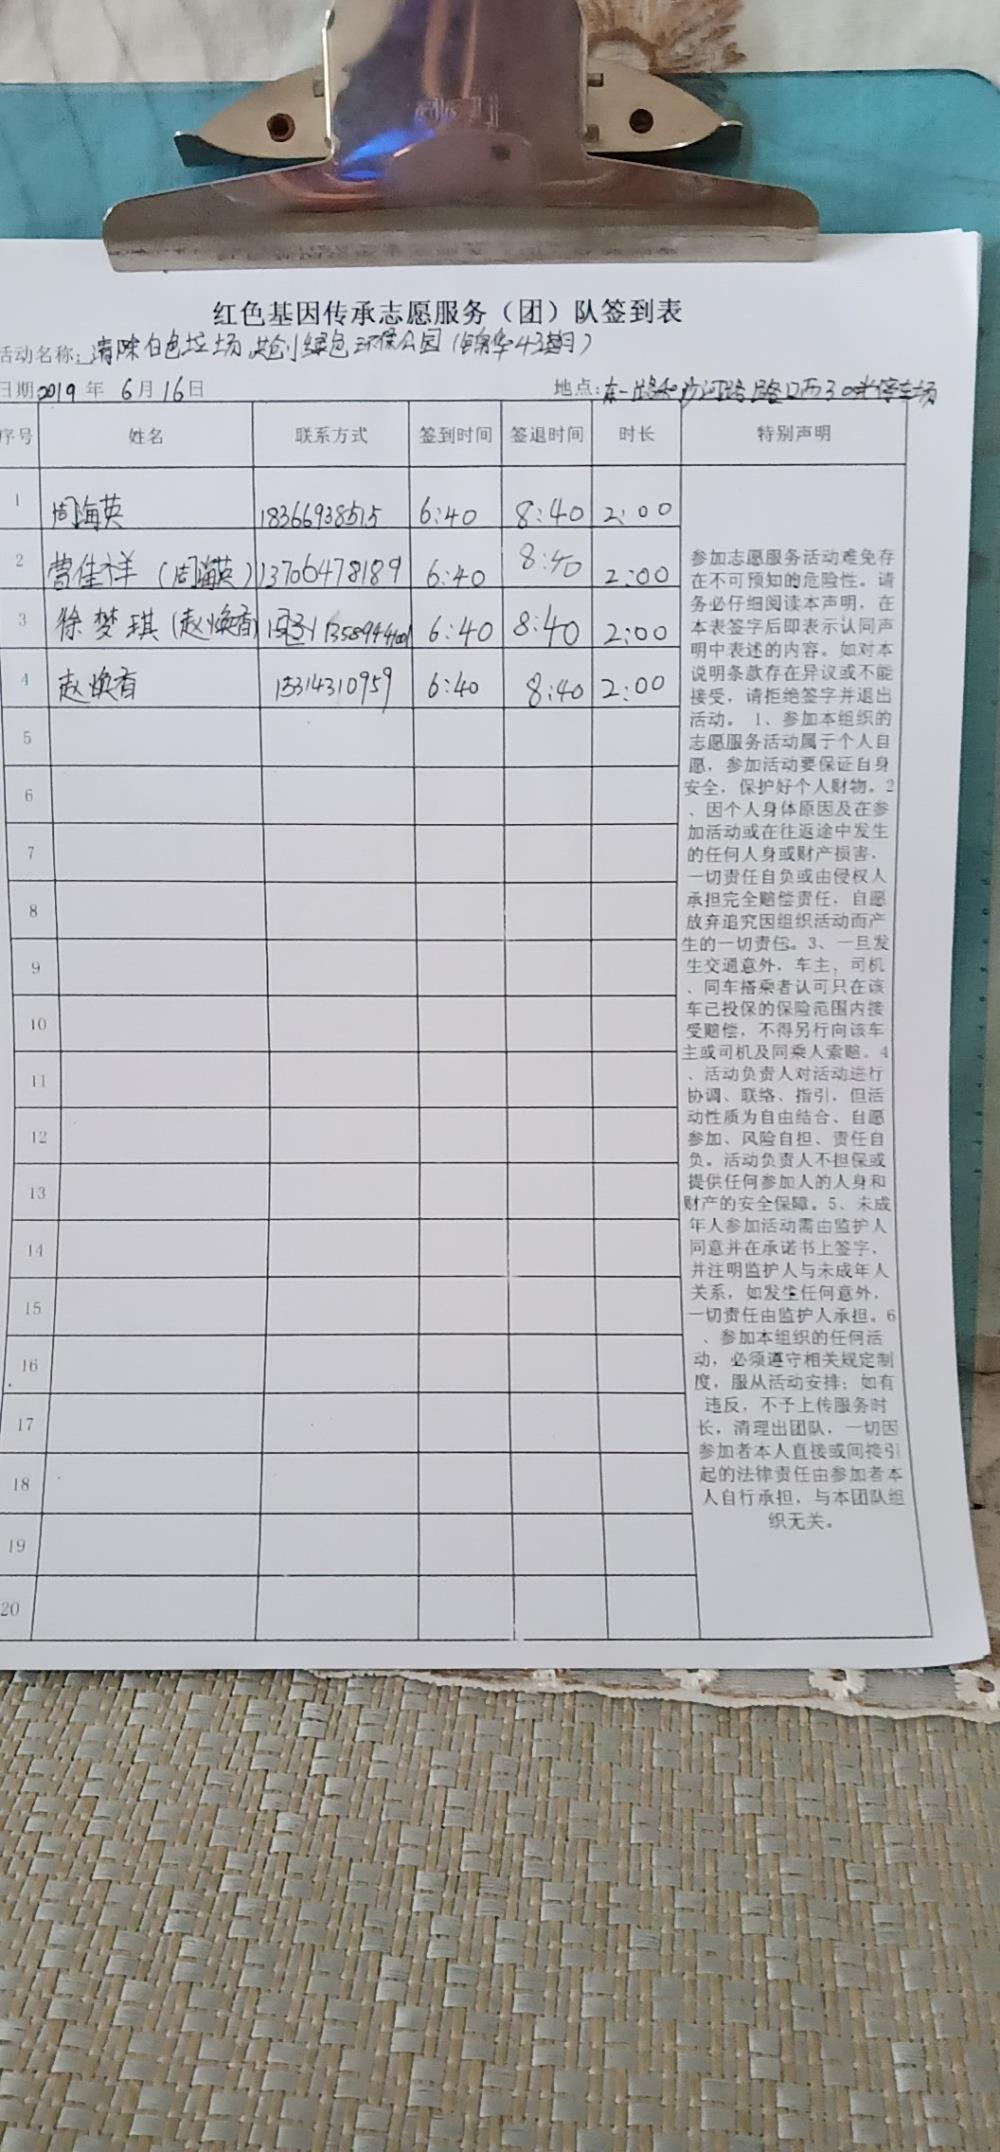 红色基因传承志愿服务（团）队签到表
活动名称：清除白色垃圾 共创绿色环保公园（锦华43期）
日期2019年6月16日 地点：东一路和沙河路路口西30米停车场
序号 姓名 联系方式 签到时间 签退时间 时长 特别声明
1 周海英 18366938515 6:40 8:40 2:00
2 曹佳祥（周海英） 13706478189 6:40 8:40 2:00
3 徐梦琪（赵焕香） 6:40 8:40 2:00
4 赵焕香 15314310959 6:40 8:40 2:00
5
6
7
8
9
10
11
12
13
14
15
16
17
18
19
20
参加志愿服务活动难免存
在不可预知的危险性。请
务必仔细阅读本声明，在
本表签字后即表示认同声
明中表述的内容。如对本
说明条款存在异议或不能
接受，请拒绝签字并退出
活动。 1、参加本组织的
志愿服务活动属于个人自
愿，参加活动要保证自身
安全，保护好个人财物。2
、因个人身体原因及在参
加活动或在往返途中发生
的任何人身或财产损害，
一切责任自负或由侵权人
承担完全赔偿责任，自愿
放弃追究因组织活动而产
生的一切责任。3、一旦发
生交通意外，车主，司机
、同车搭乘者认可只在该
车已投保的保险范围内接
受赔偿，不得另行向该车
主或司机及同乘人索赔。4
、活动负责人对活动进行
协调、联络、指引，但活
动性质为自由结合、自愿
参加、风险自担、责任自
负。活动负责人不担保或
提供任何参加人的人身和
财产的安全保障。5、未成
年人参加活动需由监护人
同意并在承诺书上签字，
并注明监护人与未成年人
关系，如发生任何意外，
一切责任由监护人承担。6
、参加本组织的任何活
动，必须遵守相关规定制
度，服从活动安排；如有
违反，不予上传服务时
长，清理出团队，一切因
参加者本人直接或间接引
起的法律责任由参加者本
人自行承担，与本团队组
织无关。